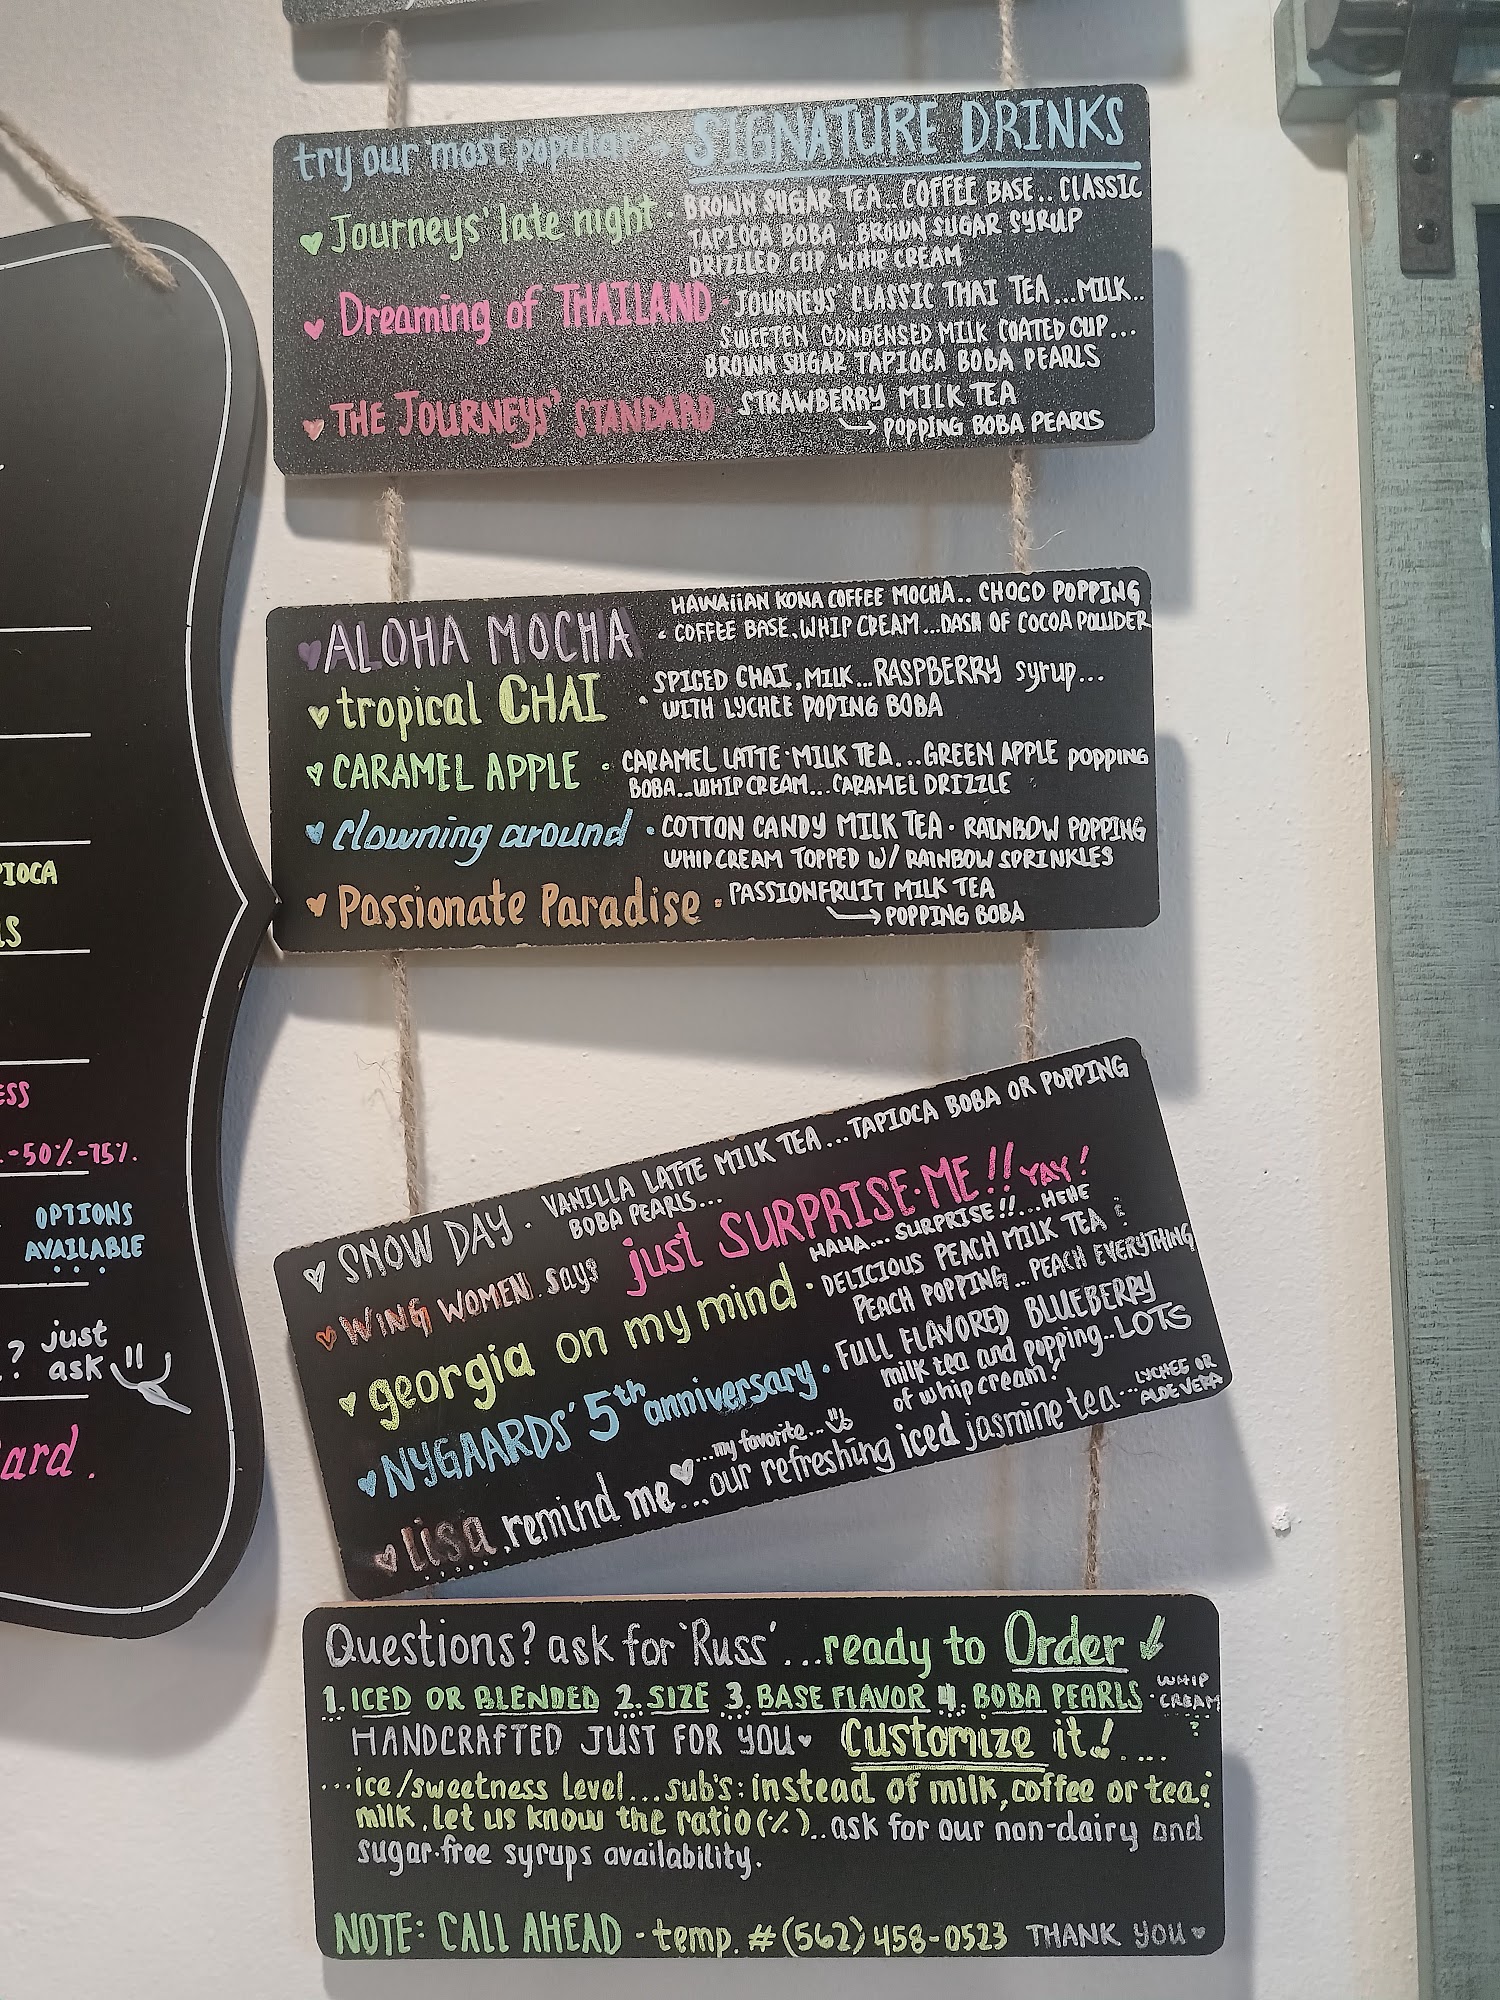 try our 'most popular' SIGNATURE DRINKS
Journeys' late night · BROWN SUGAR TEA.. COFFEE BASE.. CLASSIC
TAPIOCA BOBA..BROWN SUGAR SYRUP
DRIZZLED CUP.WHIP CREAM
Dreaming of THAILAND · JOURNEYS' CLASSIC THAI TEA...MILK..
SWEETEN CONDENSED MILK COATED CUP...
BROWN SUGAR TAPIOCA BOBA PEARLS
THE JOURNEYS' STANDARD · STRAWBERRY MILK TEA
→ POPPING BOBA PEARLS
ALOHA MOCHA · HAWAiiAN KONA COFFEE MOCHA.. CHOCO POPPING
COFFEE BASE.WHIP CREAM...DASH OF COCOA POWDER
tropical CHAI · SPICED CHAI, MILK...RASPBERRY syrup...
WITH LYCHEE POPING BOBA
CARAMEL APPLE · CARAMEL LATTE·MILK TEA...GREEN APPLE popping
BOBA...WHIP CREAM...CARAMEL DRIZZLE
clowning around · COTTON CANDY MILK TEA · RAINBOW POPPING
WHIP CREAM TOPPED W/ RAINBOW SPRINKLES
Passionate Paradise · PASSIONFRUIT MILK TEA
→ POPPING BOBA
SNOW DAY · VANILLA LATTE MILK TEA...TAPIOCA BOBA OR POPPING
BOBA PEARLS...
WING WOMEN says just SURPRISE·ME!! YAY!
HAHA... SURPRISE!!...HEHE
georgia on my mind · DELICIOUS PEACH MILK TEA :
PEACH POPPING...PEACH EVERYTHING
NYGAARDS' 5th anniversary · FULL FLAVORED BLUEBERRY
milk tea and popping..LOTS
of whip cream!
lisa, remind me ♥ ...my favorite...
...our refreshing iced jasmine tea ... LYCHEE OR
ALOE VERA
Questions? ask for 'Russ'...ready to Order ↓
1. ICED OR BLENDED 2. SIZE 3. BASE FLAVOR 4. BOBA PEARLS · WHIP
CREAM
?
HANDCRAFTED JUST FOR YOU♥ Customize it!....
...ice/sweetness level...sub's: instead of milk, coffee or tea:
milk. let us know the ratio(%)...ask for our non-dairy and
sugar-free syrups availability.
NOTE: CALL AHEAD - temp. # (562) 458-0523 THANK YOU♥
PIOCA
LS
ESS
-50%-75%
OPTIONS
AVAILABLE
? just
ask
ard.